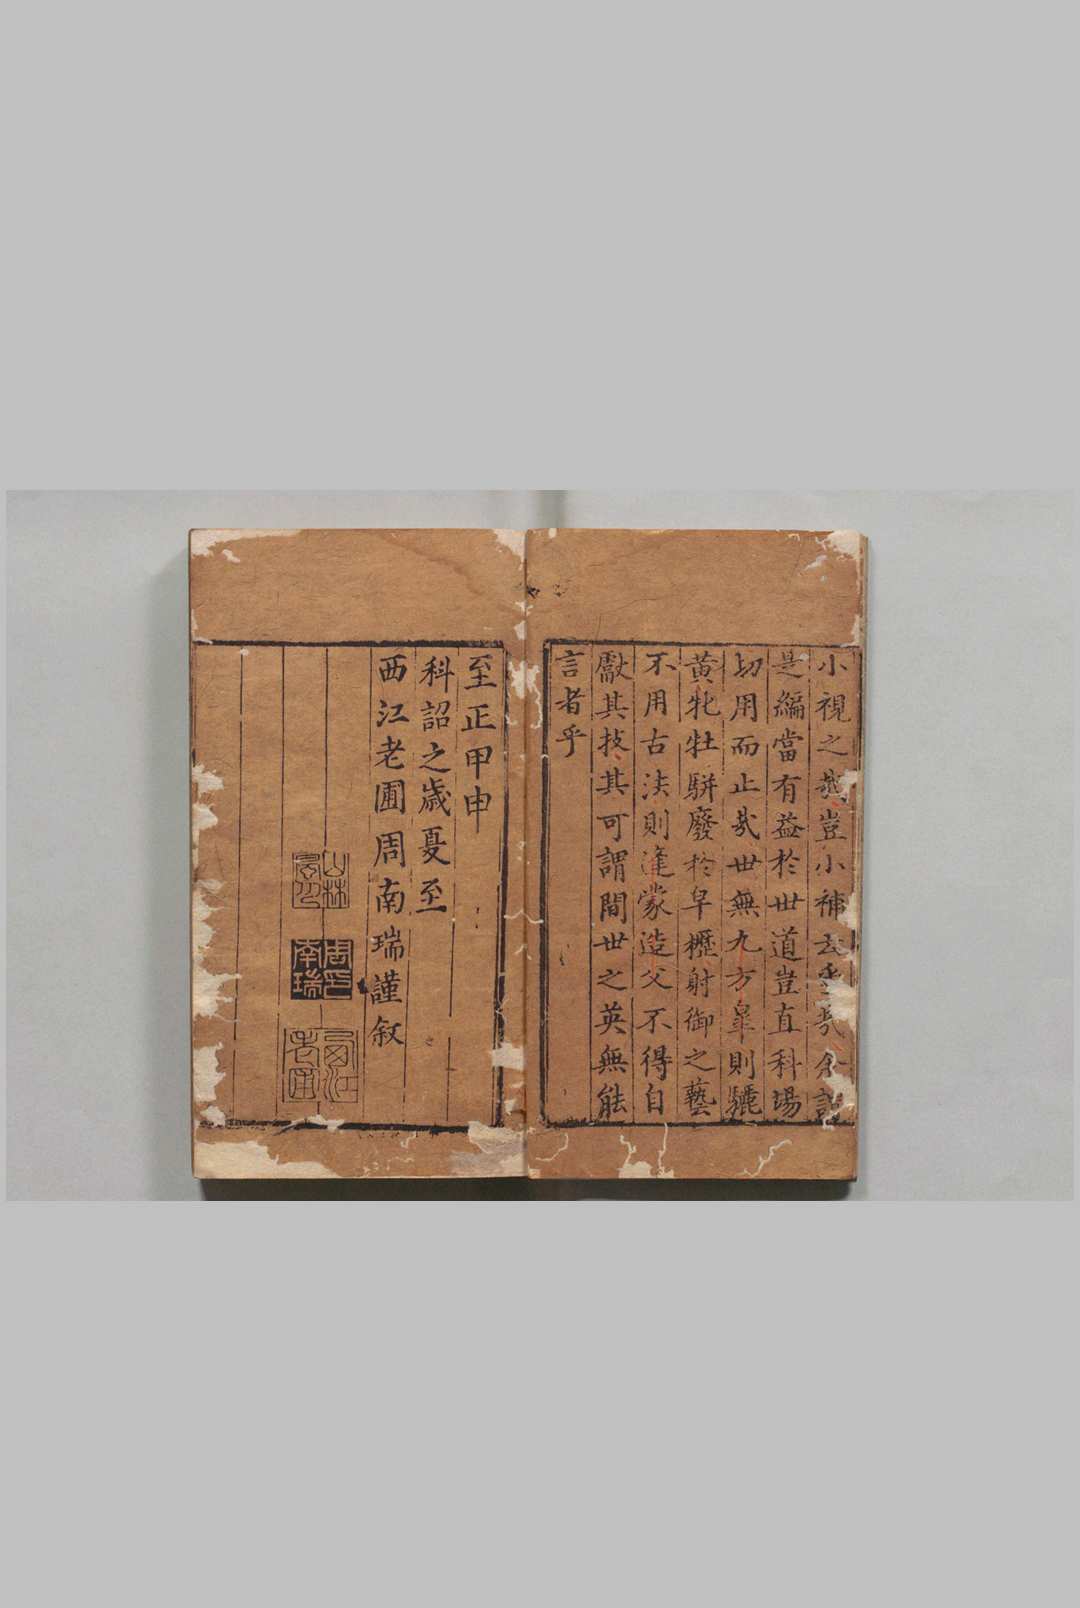 小視之哉豈小補云乎哉余謂
是編當有益於世道豈直科場
切用而止哉世無九方皐則驪
黄牝牡駢廢於皁櫪射御之藝
不用古法則逢蒙造父不得自
獻其技其可謂間世之英無能
言者乎
至正甲申
科詔之歳夏至
西江老圃周南瑞謹叙
周南瑞印
西江老圃